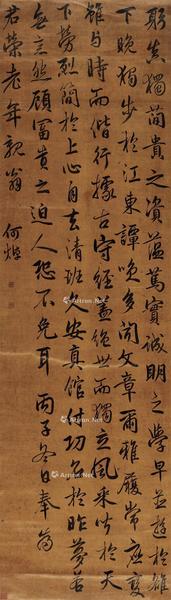 真獨簡貴之資蘊篤實誠明之學早並遊於雒
下晚獨步於江東譚咲多聞文章爾雅履常應變
雖與時而偕行據古守經蓋絕世而獨立風采聳於天
下勞烈簡於上心自去清班久安真館付功名於昨夢若
無意然顧富貴之迫人恐不免耳 丙子冬日奉
若榮老年親翁 何焯